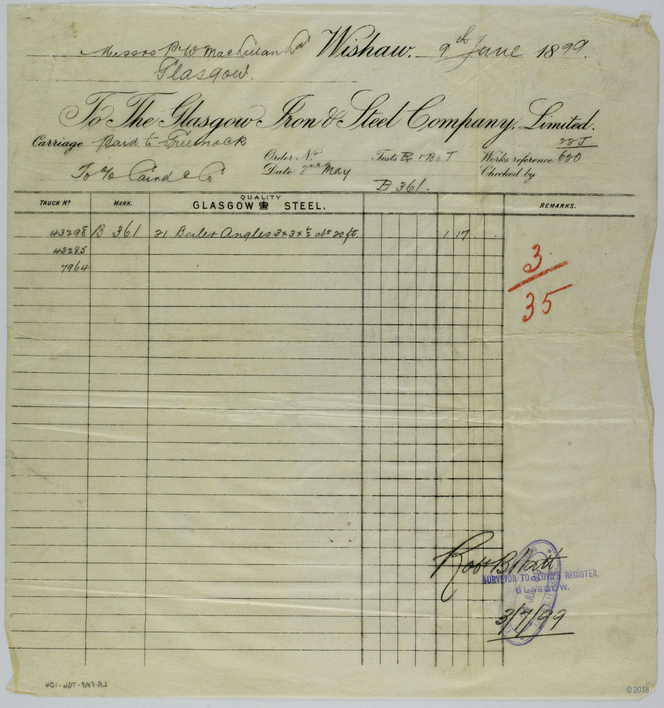 Messrs P. & W. MacLellan Ld Wishaw. 9th June 1899.
Glasgow.
To The Glasgow Iron & Steel Company, Limited.
Carriage Paid to Greenock
Order No
Tests B
Works reference 620
To Caird & Co
Date 2nd May
Checked by
B 361.
TRUCK No MARK. QUALITY GLASGOW STEEL. REMARKS.
43298 B 361 21 Boiler Angles 3 x 3 x ½ abt 20 ft. 1 17
43285
7964
3
35
Robt B
SURVEYOR TO LLOYD'S REGISTER,
GLASGOW.
3/7/99
© 2018